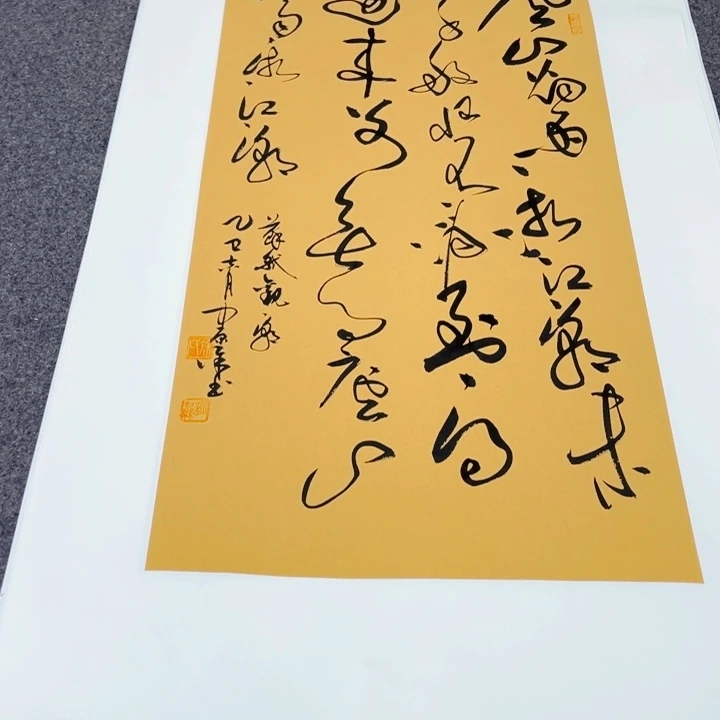 庐山烟雨浙江潮未
千般恨不消到得
还来别无事庐山
雨浙江潮
苏轼观潮
乙巳六月书